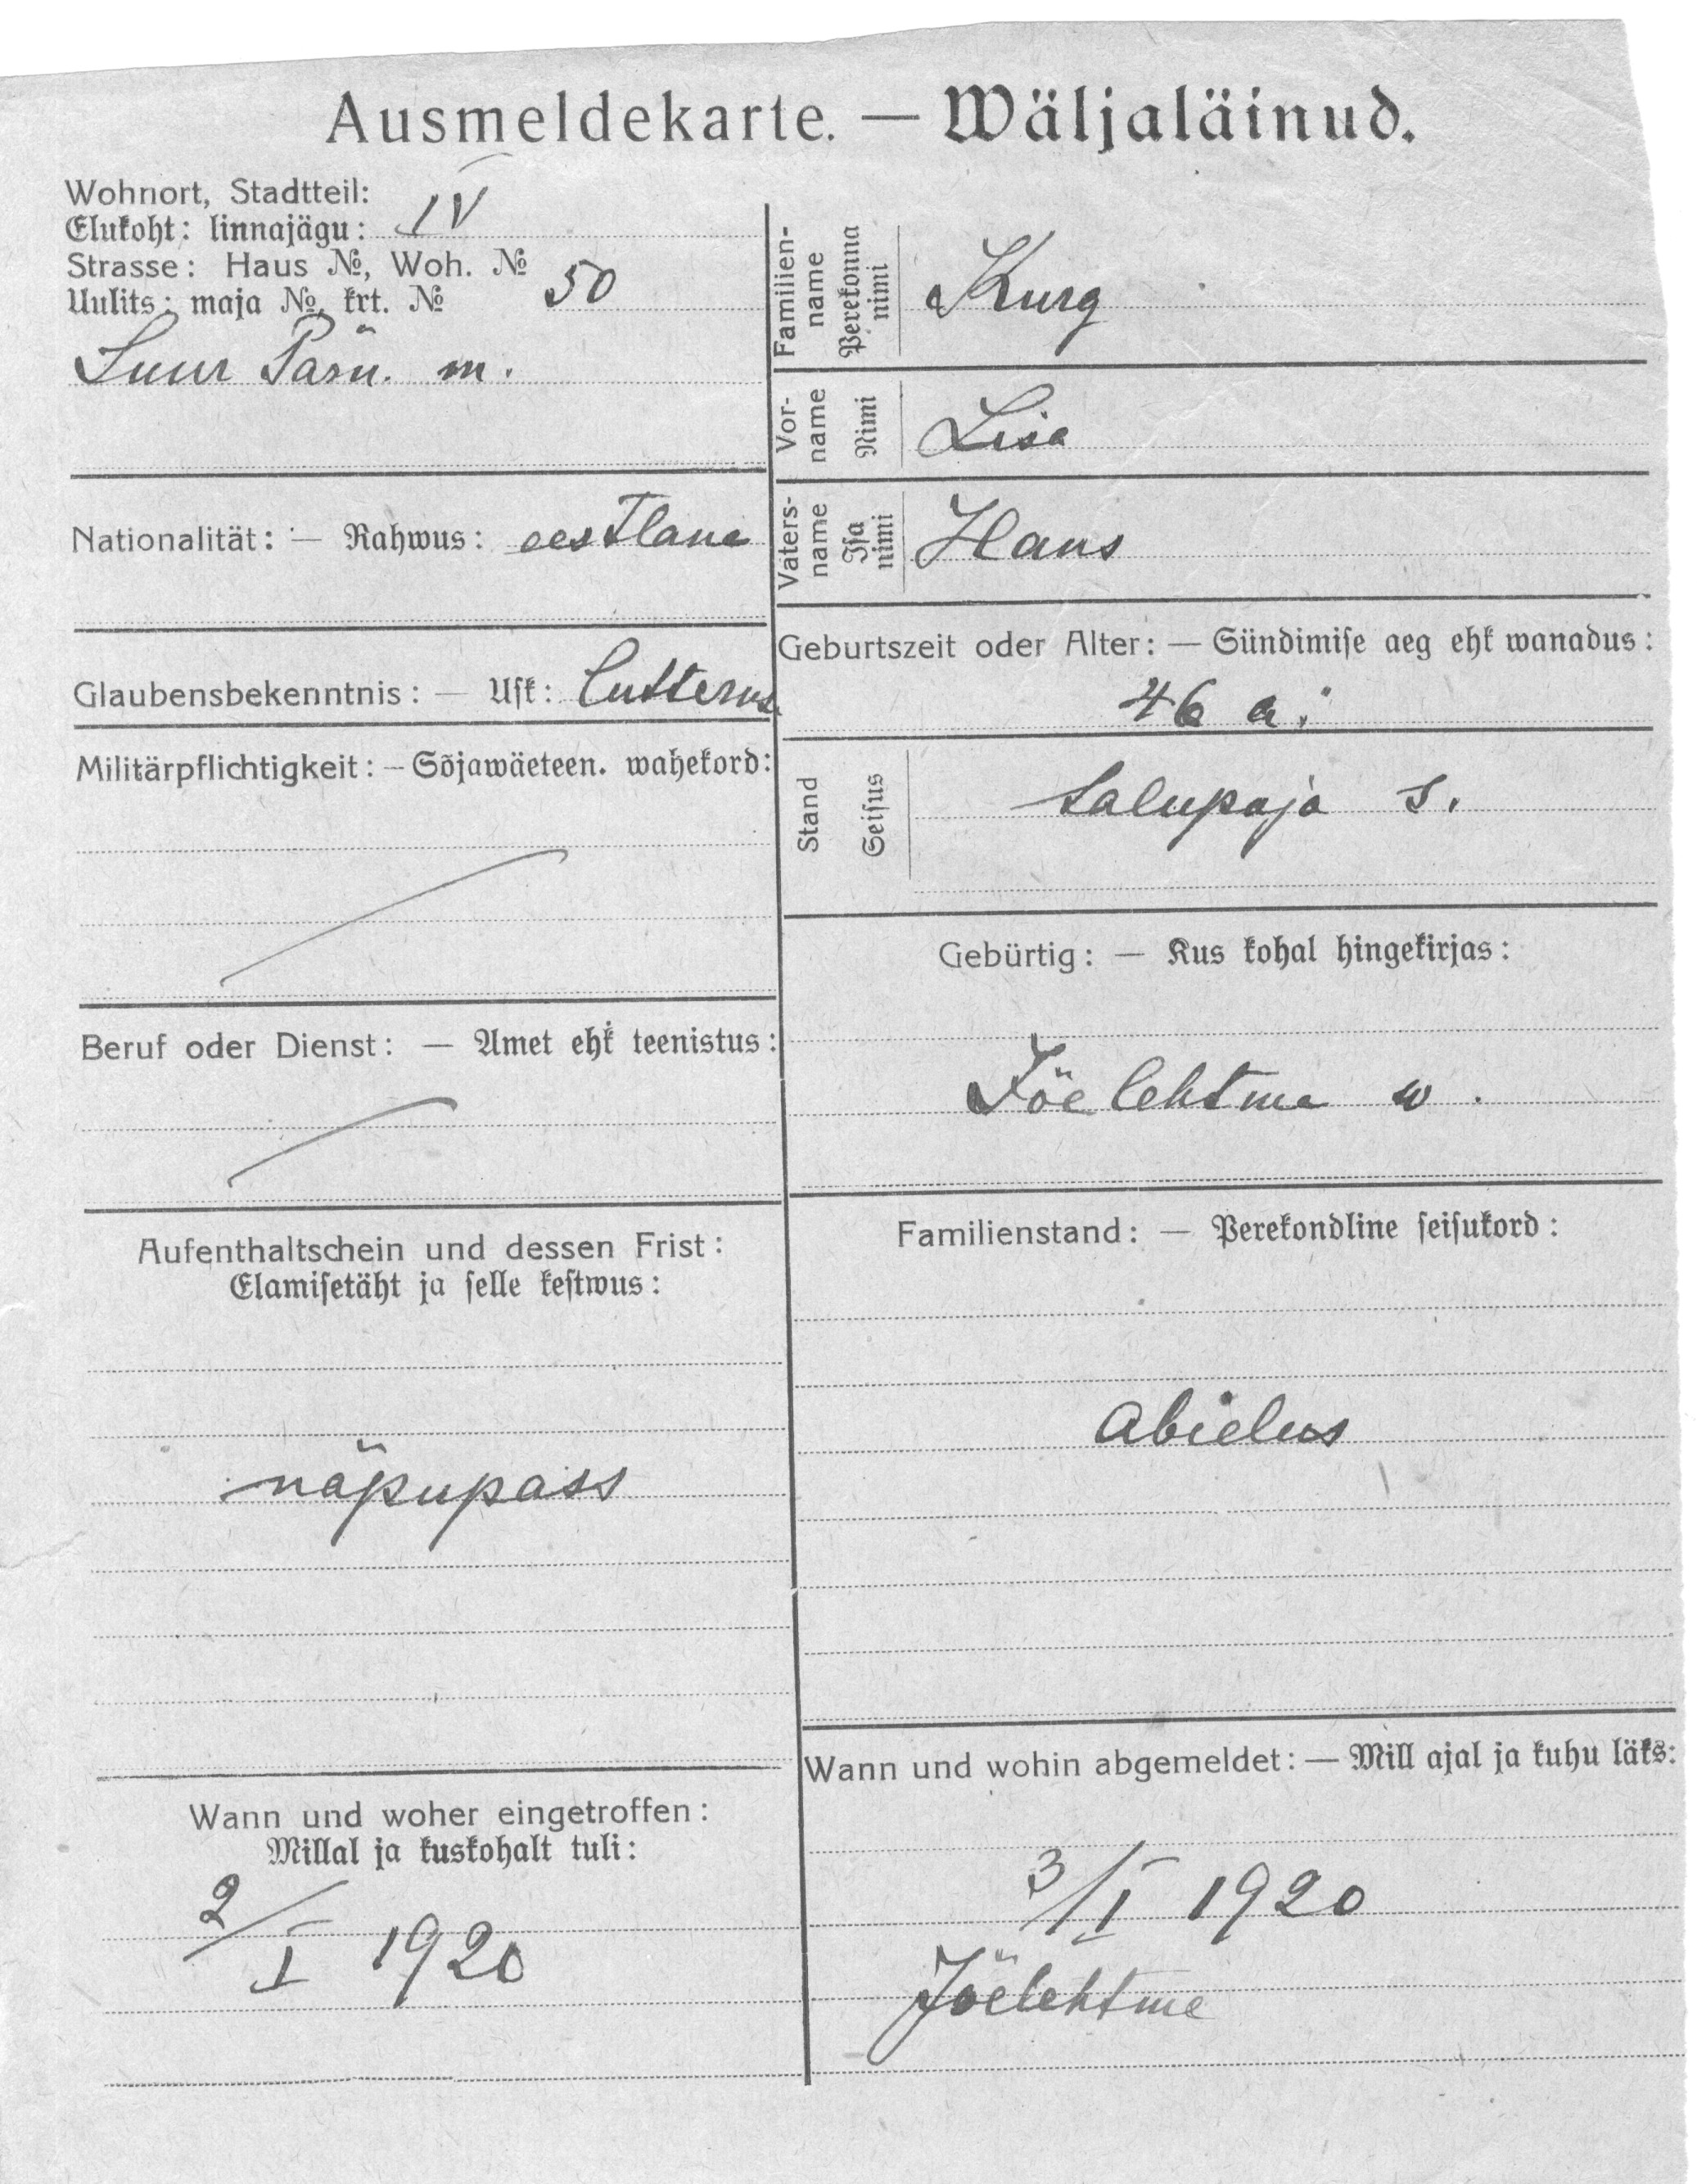 Ausmeldekarte. — Wäljaläinud.
Wohnort, Stadtteil:
Elukoht: linnajägu: IV
Strasse: Haus №, Woh. №
Uulits: maja №, krt. № 50
Suur Pärn. m.
Nationalität: — Rahwus: eestlane
Glaubensbekenntnis: — Usk: lutterus
Militärpflichtigkeit: — Sõjawäeteen. wahekord:
Beruf oder Dienst: — Amet ehk teenistus:
Aufenthaltschein und dessen Frist:
Elamisetäht ja selle kestwus:
näpupass
Wann und woher eingetroffen:
Millal ja kuskohalt tuli:
2/I 1920
Familien-
name
Perekonna
nimi
Kurg
Vor-
name
Nimi
Lisa
Vaters-
name
Isa
nimi
Hans
Geburtszeit oder Alter: — Sündimise aeg ehk wanadus:
46 a.
Stand
Seisus
talupoja s.
Gebürtig: — Kus kohal hingekirjas:
Jöelehtme w.
Familienstand: — Perekondline seisukord:
abielus
Wann und wohin abgemeldet: — Mill ajal ja kuhu läks:
3/I 1920
Jöelehtme